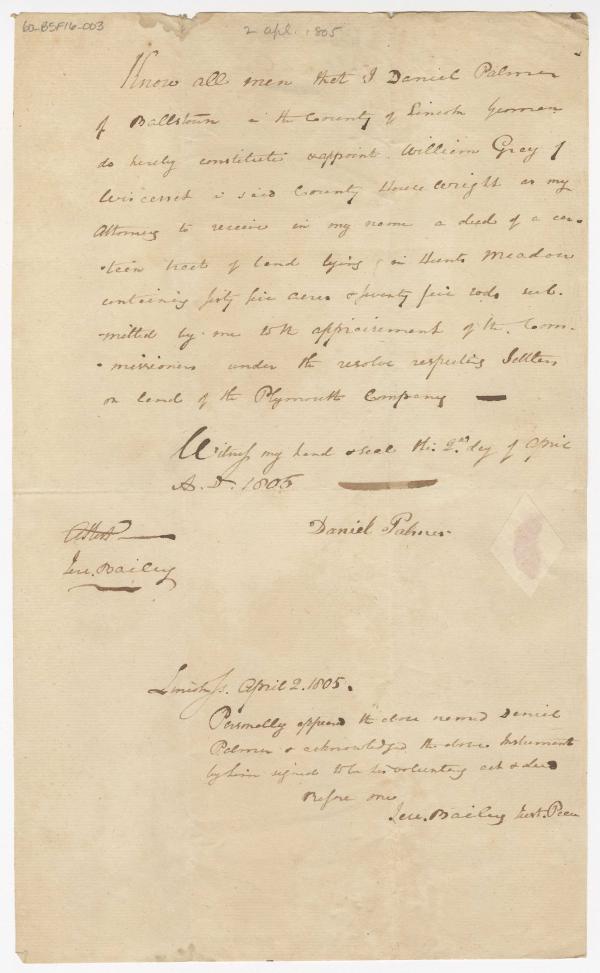 60-BSF16-003
2 Apl. 1805
Know all men that I Daniel Palmer
of Ballstown in the County of Lincoln Yeoman
do hereby constitute & appoint William Gray of
Wiscasset in said County House wright as my
Attorney to receive in my name a deed of a cer-
-tain tract of land lying in Hunts Meadow
containing sixty five acres & seventy five rods sub-
-mitted by me to the appraisement of the Com-
-missioners under the resolve respecting Settlers
on land of the Plymouth Company —
Witness my hand & seal this 2nd day of April
A.D. 1805
Daniel Palmer
Attest
Jere. Bailey
Lincoln ss. April 2. 1805.
Personally appeared the above named Daniel
Palmer & acknowledged the above Instrument
by him signed to be his voluntary act & deed
Before me
Jere. Bailey Just. Peace